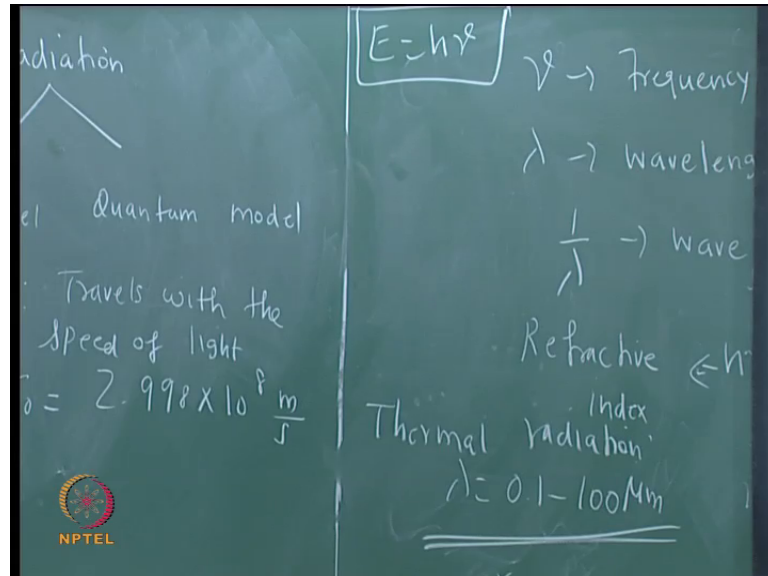 adiation
el Quantum model
: Travels with the
speed of light
= 2.998 × 10⁸ m/s
E = hν
ν → Frequency
λ → waveleng
1/λ → wave
Refractive ← n
index
Thermal radiation
λ = 0.1 - 100 μm
NPTEL